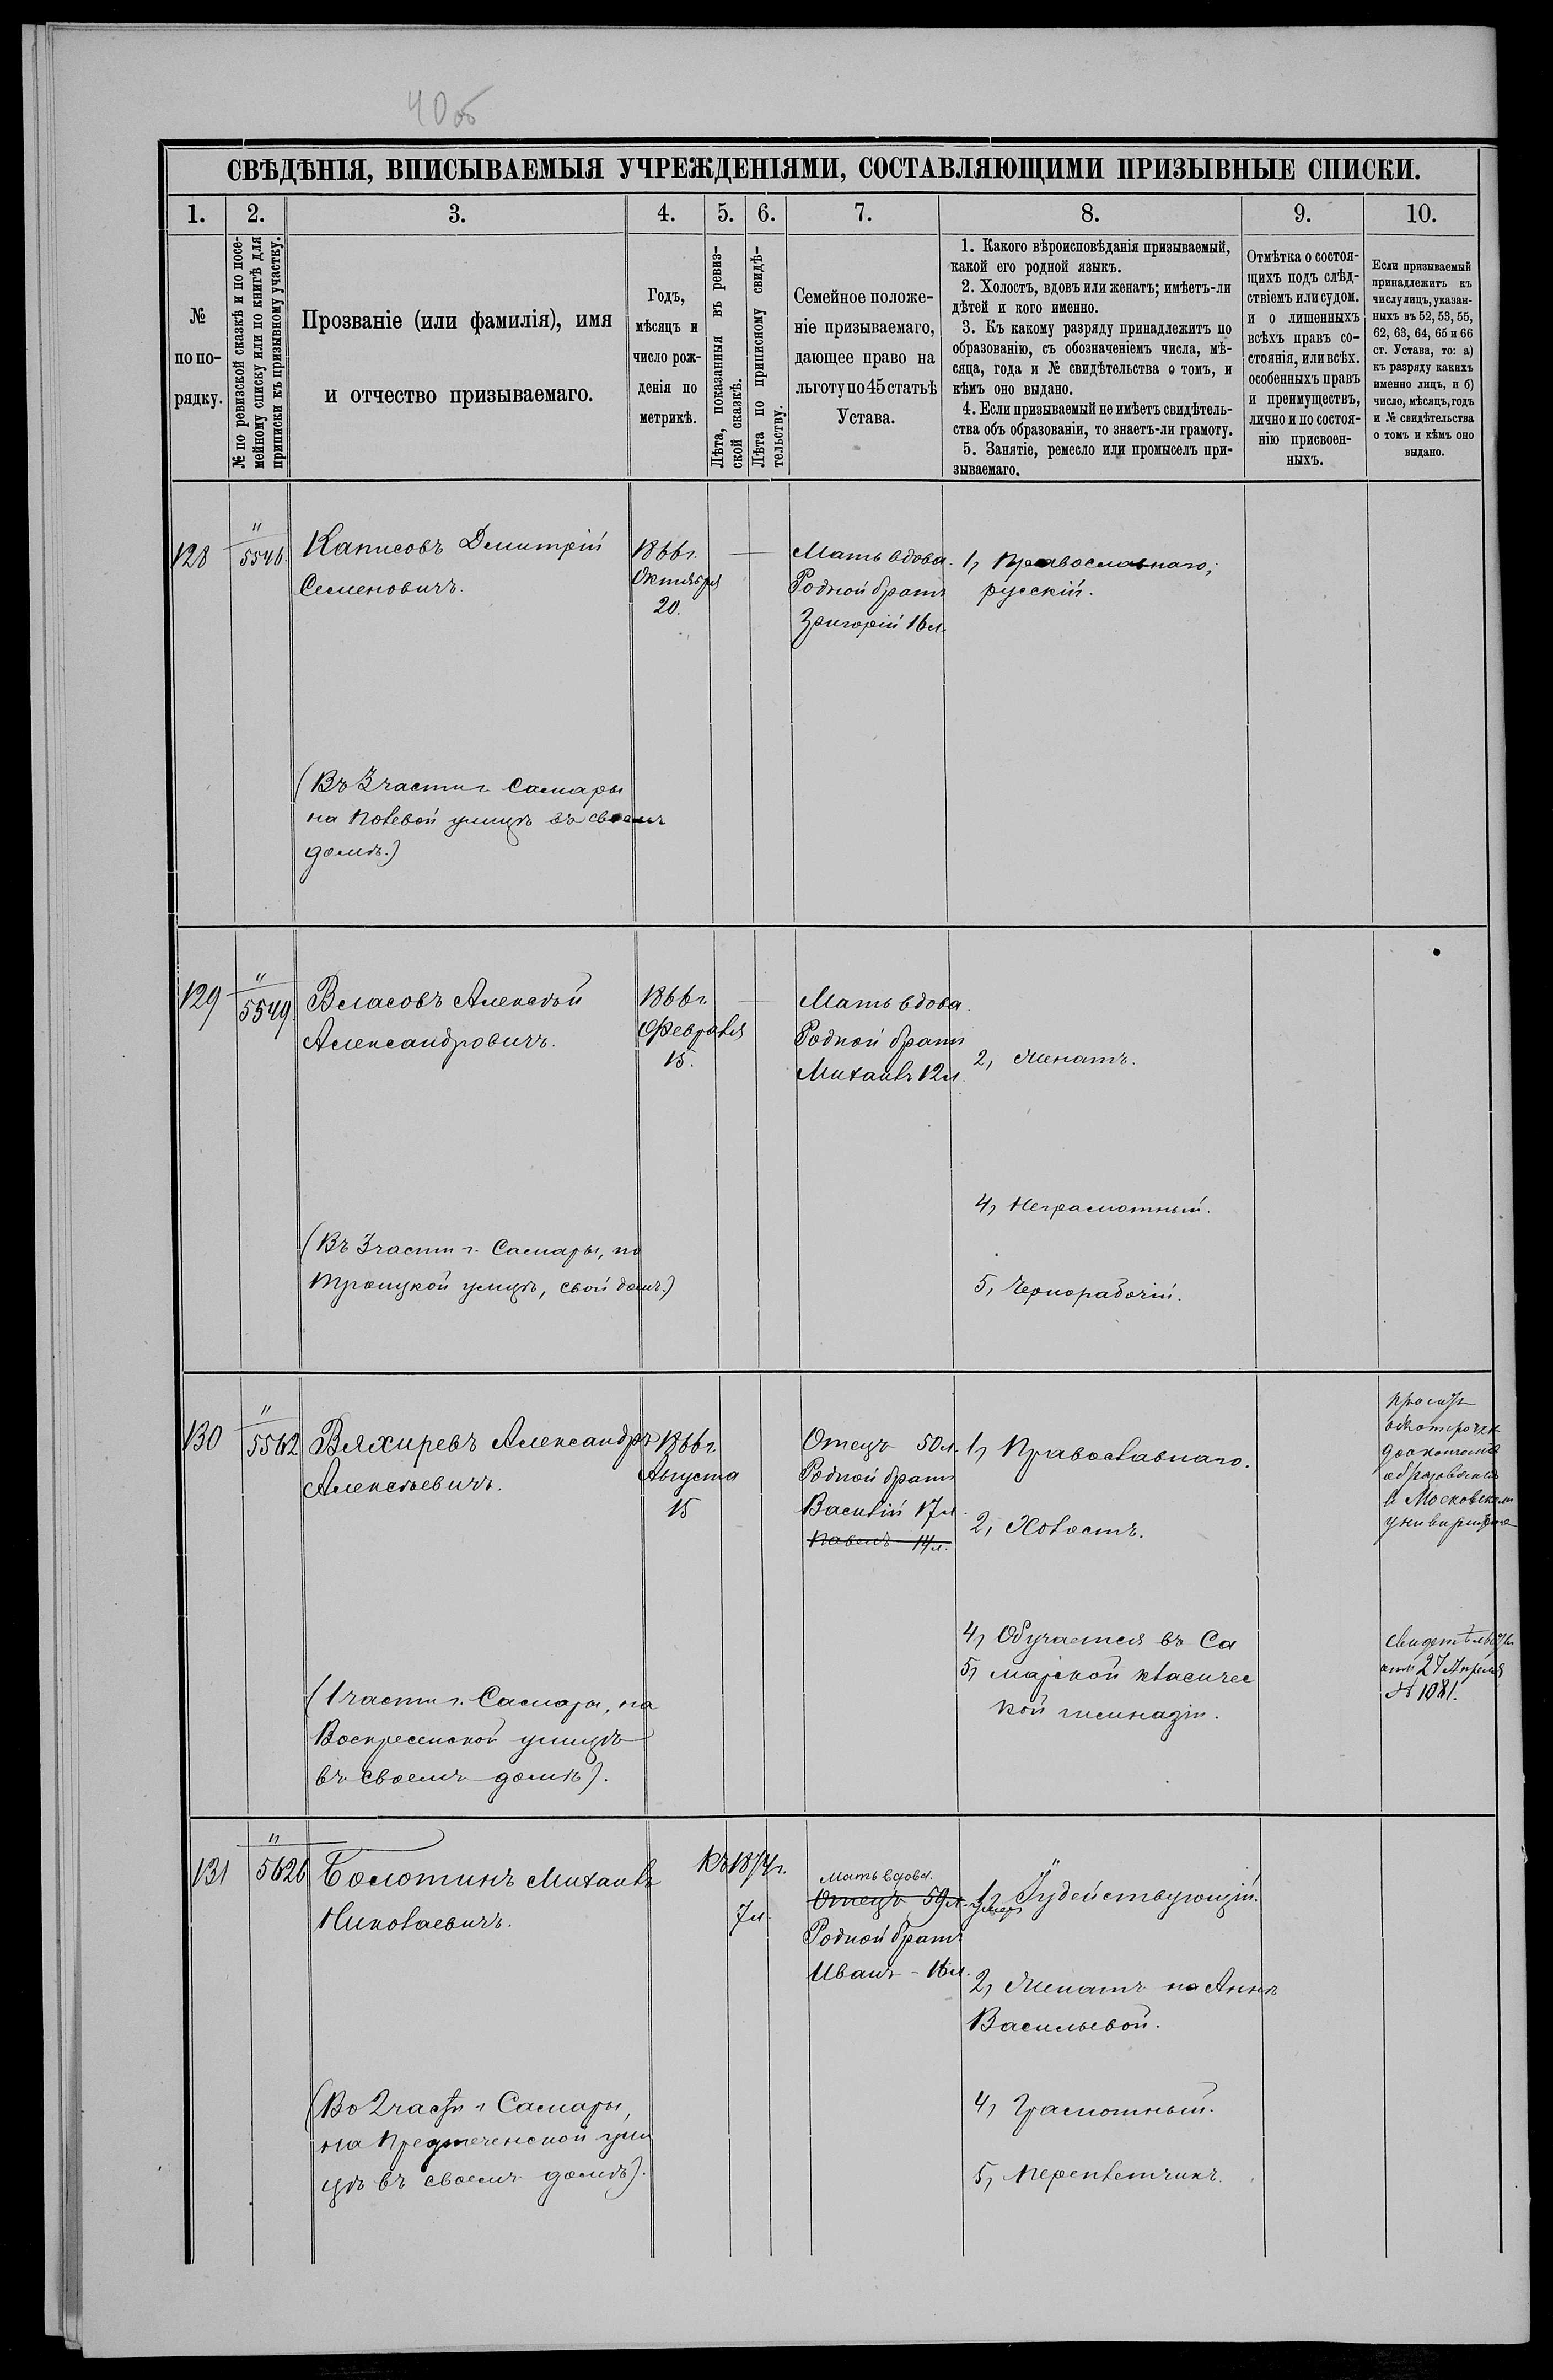 40об
СВѢДѢНІЯ, ВПИСЫВАЕМЫЯ УЧРЕЖДЕНІЯМИ, СОСТАВЛЯЮЩИМИ ПРИЗЫВНЫЕ СПИСКИ.
1. 2. 3. 4. 5. 6. 7. 8. 9. 10.
№
по по-
рядку.
№ по ревизской сказкѣ и по посе-
мейному списку или по книгѣ для
приписки къ призывному участку.
Прозваніе (или фамилія), имя
и отчество призываемаго.
Годъ,
мѣсяцъ и
число рож-
денія по
метрикѣ.
Лѣта, показанныя въ ревиз-
ской сказкѣ.
Лѣта по приписному свидѣ-
тельству.
Семейное положе-
ніе призываемаго,
дающее право на
льготу по 45 статьѣ
Устава.
1. Какого вѣроисповѣданія призываемый,
какой его родной языкъ.
2. Холостъ, вдовъ или женатъ; имѣетъ-ли
дѣтей и кого именно.
3. Къ какому разряду принадлежитъ по
образованію, съ обозначеніемъ числа, мѣ-
сяца, года и № свидѣтельства о томъ, и
кѣмъ оно выдано.
4. Если призываемый не имѣетъ свидѣтель-
ства объ образованіи, то знаетъ-ли грамоту.
5. Занятіе, ремесло или промыселъ при-
зываемаго.
Отмѣтка о состоя-
щихъ подъ слѣд-
ствіемъ или судом.
и о лишенныхъ
всѣхъ правъ со-
стоянія, или всѣх.
особенныхъ правъ
и преимуществъ,
лично и по состоя-
нію присвоен-
ныхъ.
Если призываемый
принадлежитъ къ
числу лицъ, указан-
ныхъ въ 52, 53, 55,
62, 63, 64, 65 и 66
ст. Устава, то: а)
къ разряду какихъ
именно лицъ, и б)
число, мѣсяцъ, годъ
и № свидѣтельства
о томъ и кѣмъ оно
выдано.
128
"
5546.
Каписовъ Дмитрій
Семеновичъ.
1866 г.
Октября
20.
Мать вдова.
Родной братъ
Григорій 16 л.
1, Православнаго;
русскій.
(Въ 3 части г. Самары
на Полевой улицѣ въ своемъ
домѣ.)
129
"
5549.
Власовъ Алексѣй
Александровичъ.
1866 г.
Февраля
15.
Мать вдова.
Родной братъ
Михаилъ 12 л.
2, Женатъ.
4, Неграмотный.
5, Чернорабочій.
(Въ 3 части г. Самары, по
Троицкой улицѣ, свой домъ.)
130
"
5562
Вяхиревъ Александръ
Алексѣевичъ.
1866 г.
Августа
15
Отецъ 50 л.
Родной братъ
Василій 17 л.
Павелъ 14 л.
1, Православнаго.
2, Холостъ.
4, Обучается въ Са
5, марской класичес
кой гимназіи.
образованія
въ Московском
университете
отъ 27 Апреля
№ 1081.
(1 части г. Самары, на
Воскресенской улицѣ
въ своемъ домѣ).
131
"
5626
Болотинъ Михаилъ
Николаевичъ.
Къ 1874 г.
7 л.
Мать вдова.
Отецъ 59 л. умеръ
Родной братъ
Иванъ - 16 л.
1, Іудействующій.
2, Женатъ на Аннѣ
Васильевой.
4, Грамотный.
5, Переплетчикъ.
(Во 2 части г. Самары,
на Предтеченской ули
цѣ въ своемъ домѣ).